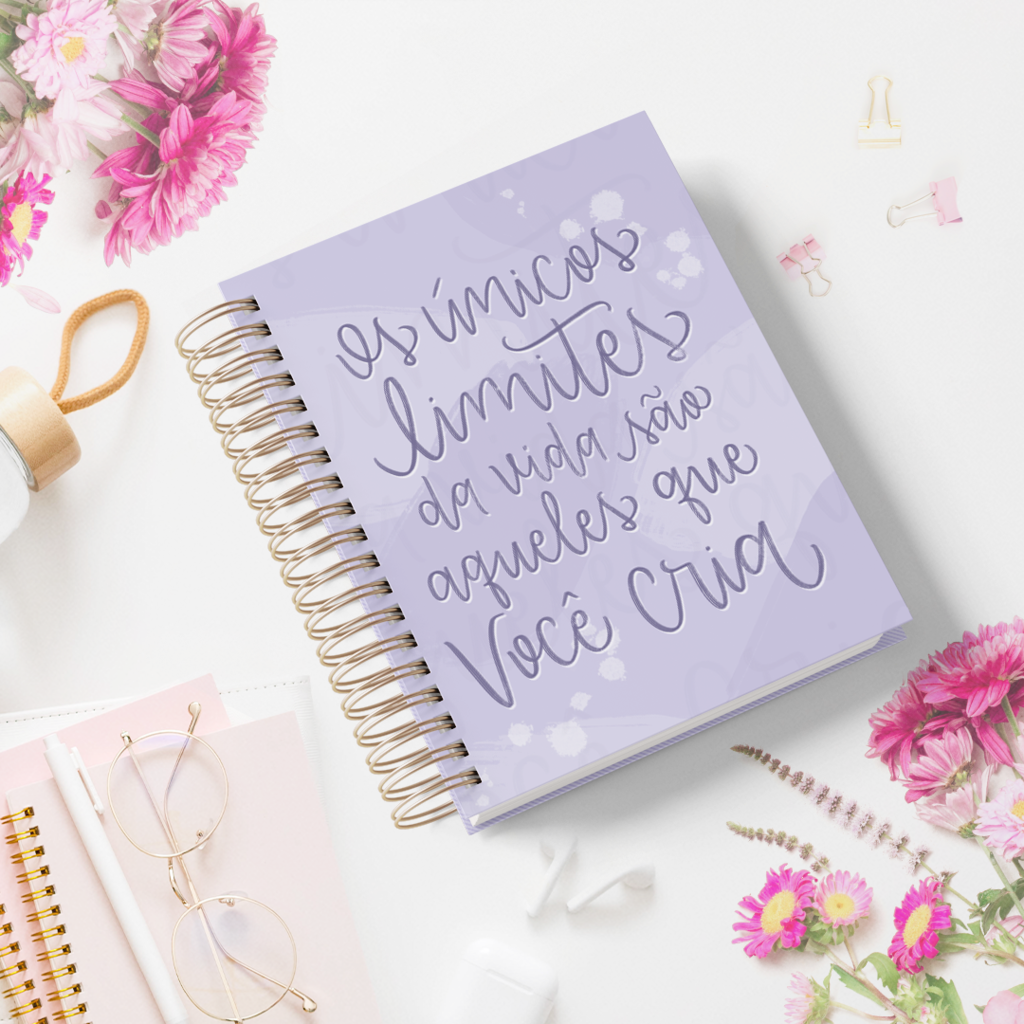 os únicos
limites
da vida são
aqueles que
Você cria